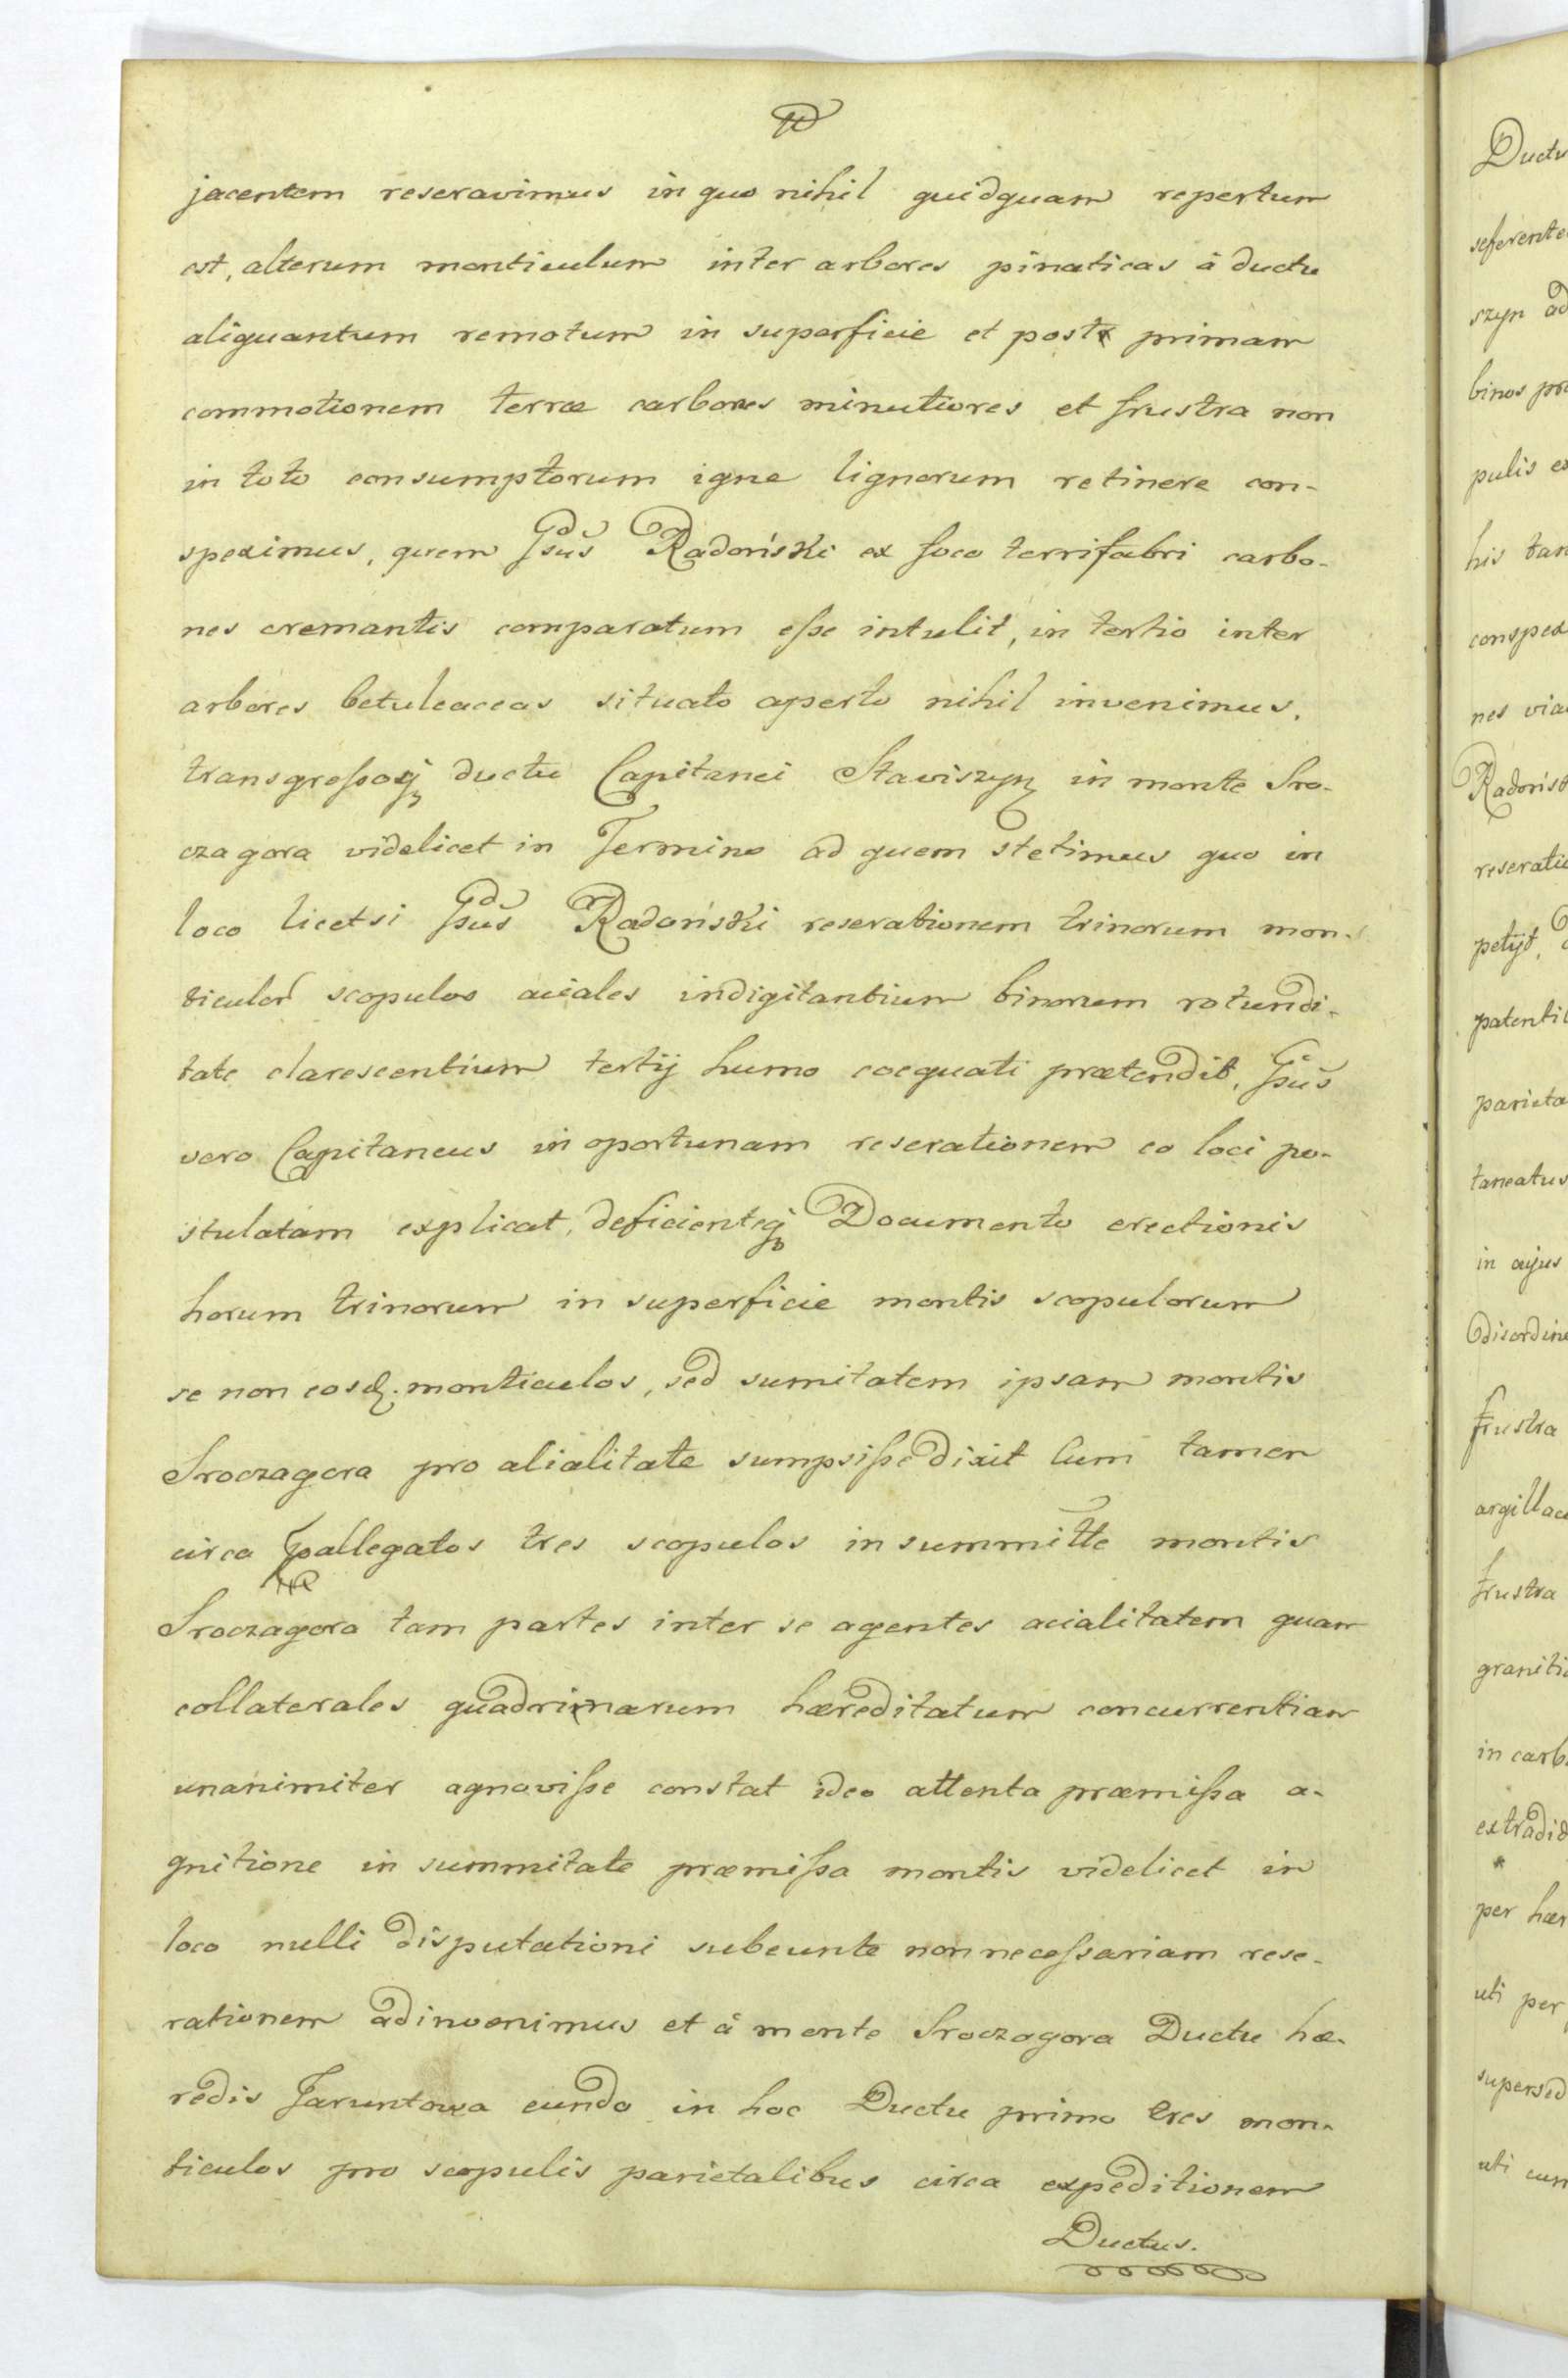 jacentem reseravimus in quo nihil quidquam repertum
est, alterum monticulum inter arbores pinaticas à ductu
aliquantum remotum in superficie et post primam
commotionem terræ carbones minutiores et frustra non
in toto consumptorum igne lignorum retinere con-
speximus, quem Gdsus Radoński ex foco terrifabri carbo-
nes cremantis comparatum esse intulit, in tertio inter
arbores betuleaceas situato aperto nihil invenimus,
transgressoq ductu Capitanei Stawiszyn in monte Sro-
cza gora videlicet in Termino ad quem stetimus quo in
loco licetsi Gdsus Radoński reserationem trinorum mon-
ticulor scopulos aciales indigitantium binorum rotundi-
tate clarescentium tertij humo coequati prætendit, Gsus
vero Capitaneus inoportunam reserationem eo loci po-
stulatam explicat, deficienteq Documento erectionis
horum trinorum in superficie montis scopulorum
se non eosd. monticulos, sed sumitatem ipsam montis
Sroczagora pro alialitate sumpsisse dixit Cum tamen
circa pallegatos tres scopulos in summitte montis
Sroczagora tam partes inter se agentes acialitatem quam
collaterales quadrinarum hæreditatum concurrentiam
unanimiter agnovisse constat ideo attenta præmissa a-
gnitione in summitate præmissa montis videlicet in
loco nulli disputationi subeunte non necessariam rese-
rationem adinvenimus et à monte Sroczagora Ductu hæ-
redis Jaruntowa eundo in hoc Ductu primo tres mon-
ticulos pro scopulis parietalibus circa expeditionem
Ductus.
Ductu
seferente
szyn ad
binos pro
pulis ex
his tan
conspex
nes via
Radońsk
reseratio
petijt,
patentib
parieta
taneatus
in cujus
disordine
frustra
argillac
frustra
graniti
in carb
extradid
per hær
uti per
supersed
uti cum